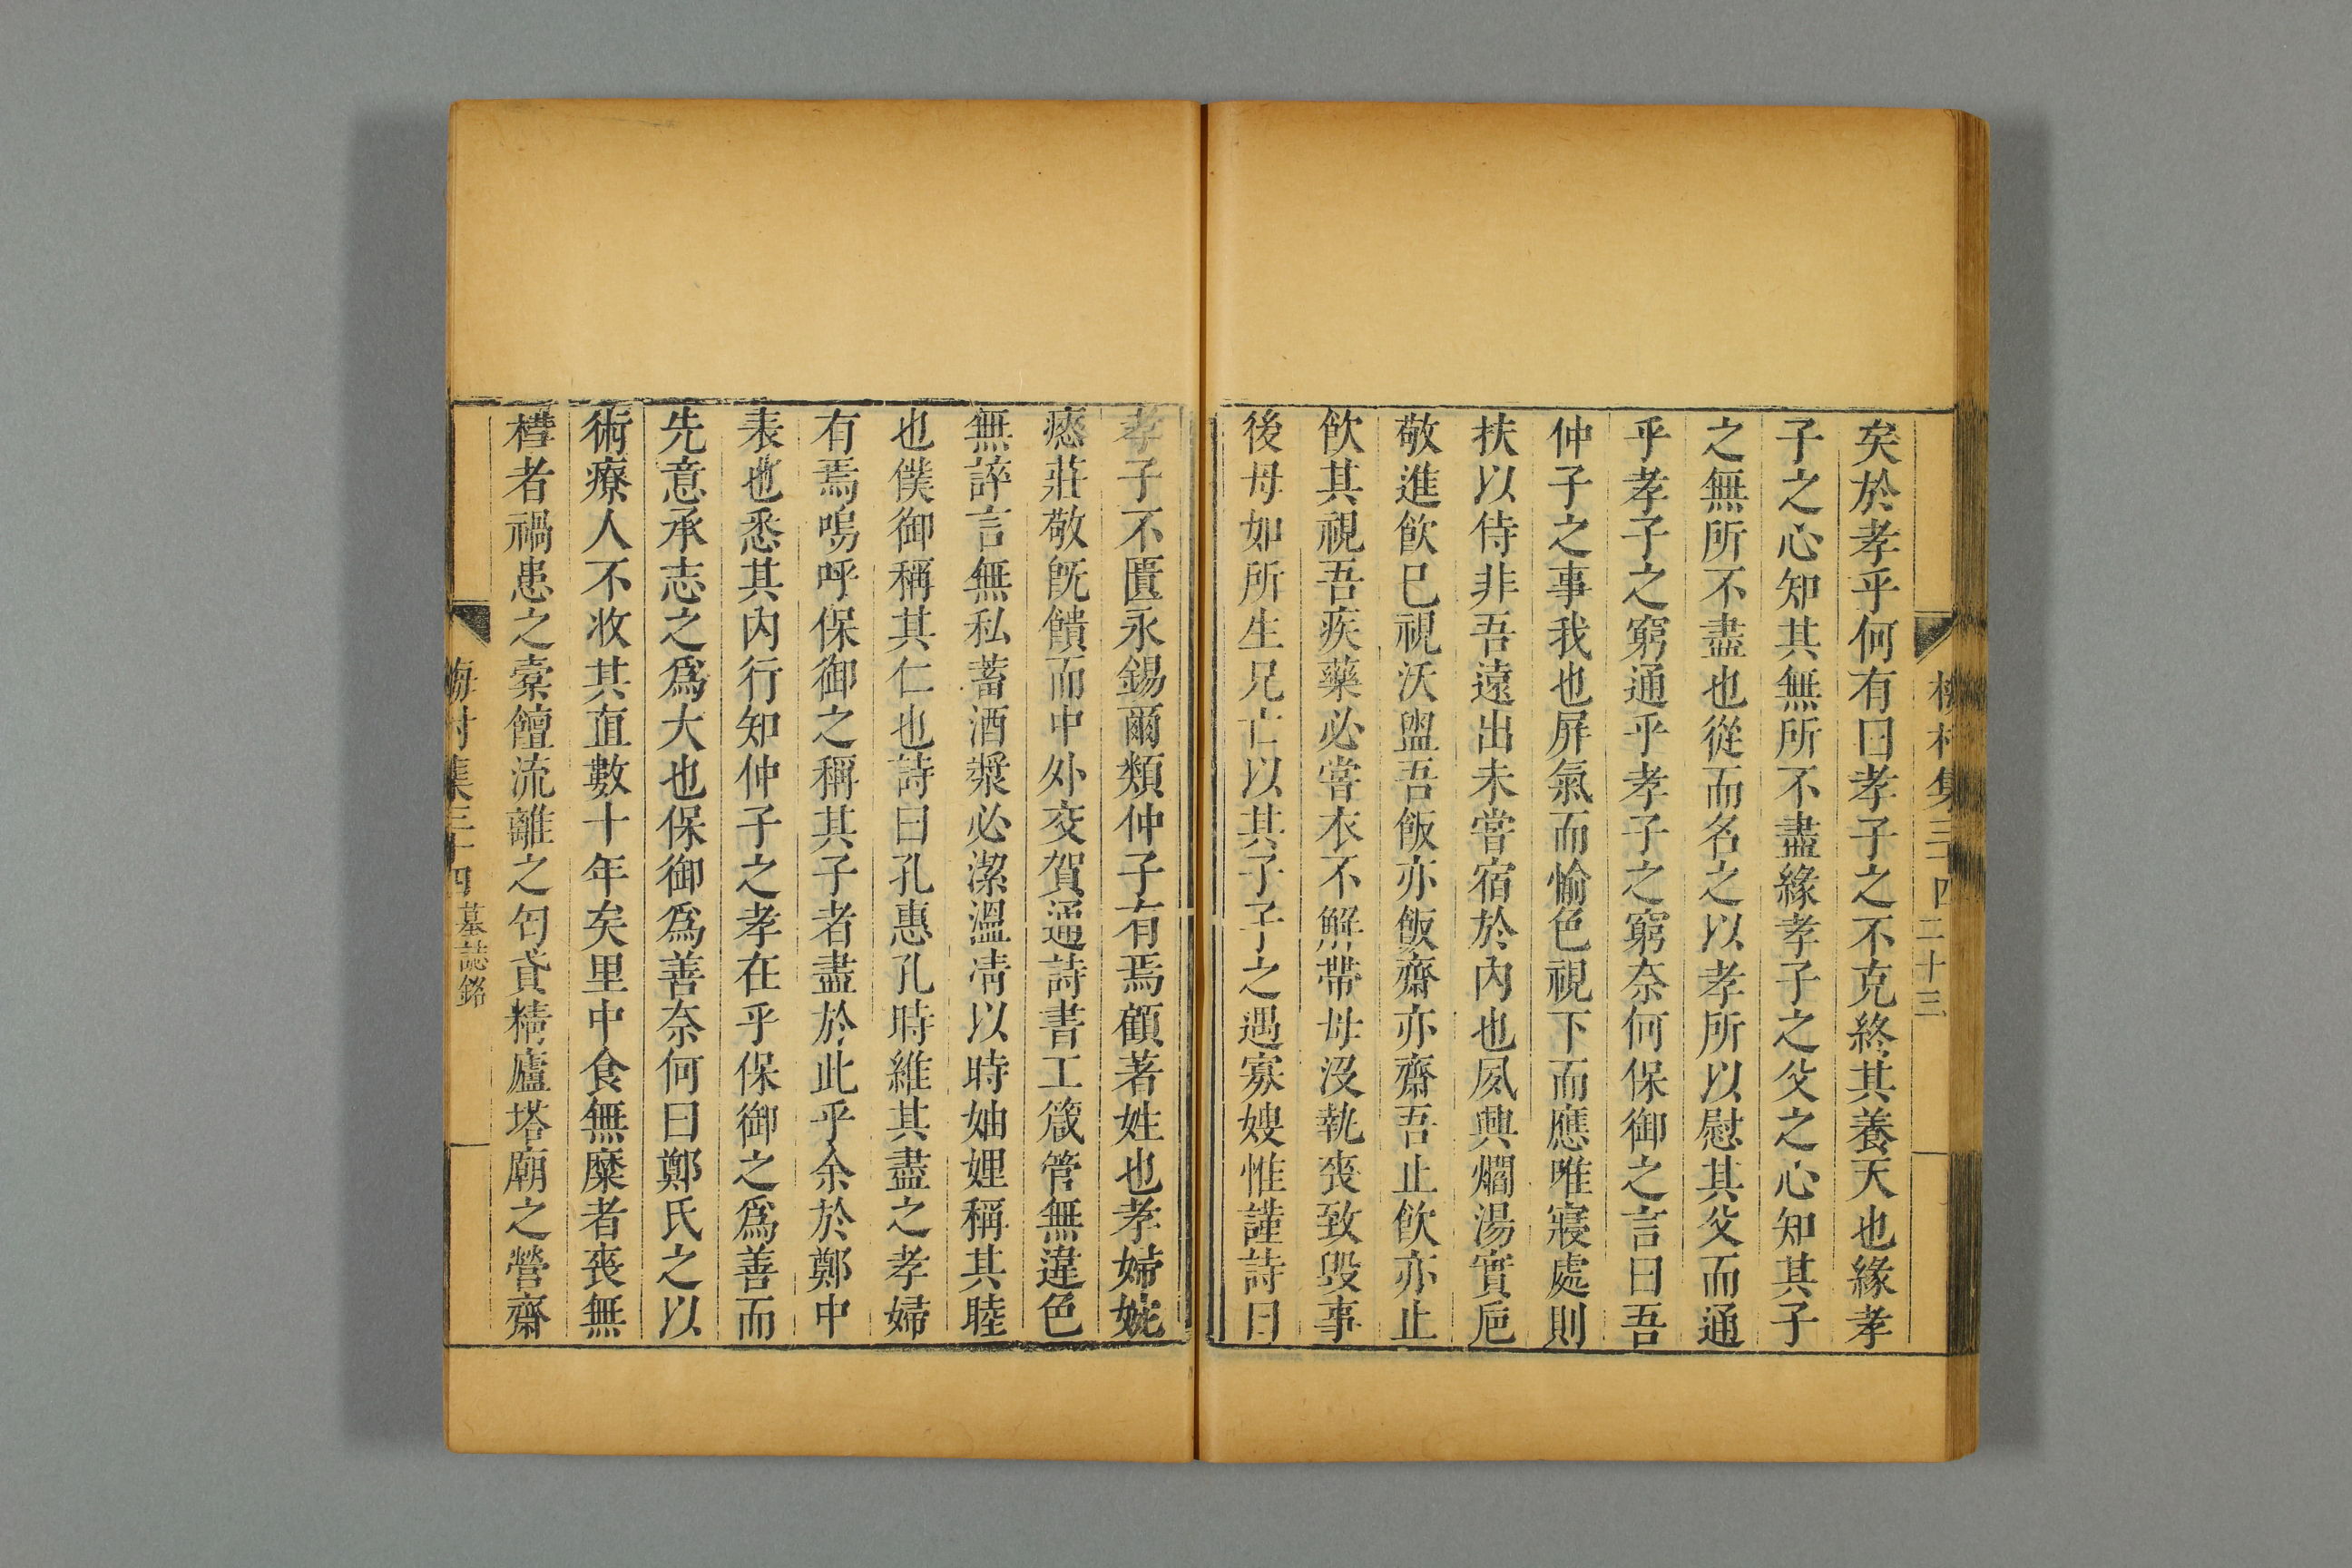 梅村集三十四 二十三
矣於孝乎何有曰孝子之不克終其養天也緣孝
子之心知其無所不盡緣孝子之父之心知其子
之無所不盡也從而名之以孝所以慰其父而通
乎孝子之窮通乎孝子之窮奈何保御之言曰吾
仲子之事我也屏氣而愉色視下而應唯寢處則
扶以侍非吾遠出未嘗宿於內也夙興燗湯實巵
敬進飲巳視沃盥吾飯亦飯齋亦齋吾止飲亦止
飲其視吾疾藥必嘗衣不解帶母沒執喪致毁事
後母如所生兄亡以其子子之遇寡嫂惟謹詩曰
孝子不匱永錫爾類仲子有焉顧著姓也孝婦婉
瘱莊敬旣饋而中外交賀通詩書工箴管無違色
無誶言無私蓄酒漿必潔溫凊以時妯娌稱其睦
也僕御稱其仁也詩曰孔惠孔時維其盡之孝婦
有焉嗚呼保御之稱其子者盡於此乎余於鄭中
表也悉其內行知仲子之孝在乎保御之爲善而
先意承志之爲大也保御爲善奈何曰鄭氏之以
術療人不收其直數十年矣里中食無糜者喪無
槥者禍患之橐饘流離之匄貣精廬塔廟之營齋
梅村集三十四 墓誌銘